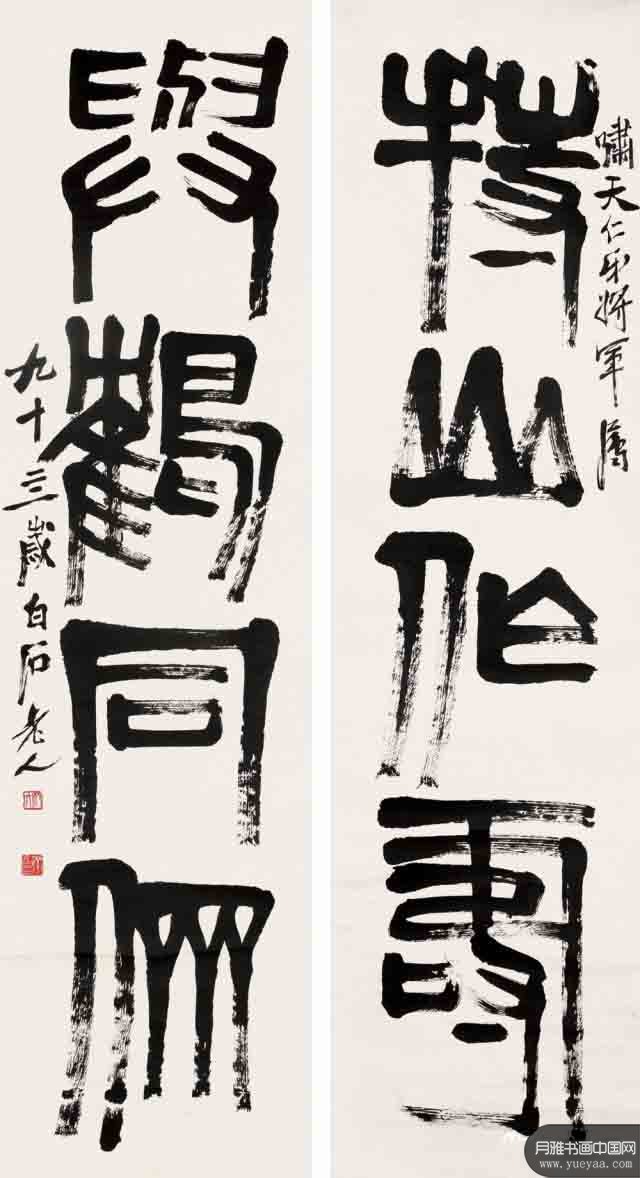 嘯天仁弟將軍屬
持山作壽
與鶴同
九十三歲白石老人
月雅书画中国网
www.yueyaa.com